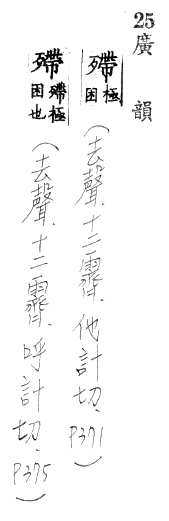 25廣韻
殢極困(去聲.十二霽.他計切.P371)
殢殢極困也(去聲.十二霽.呼計切.P375)